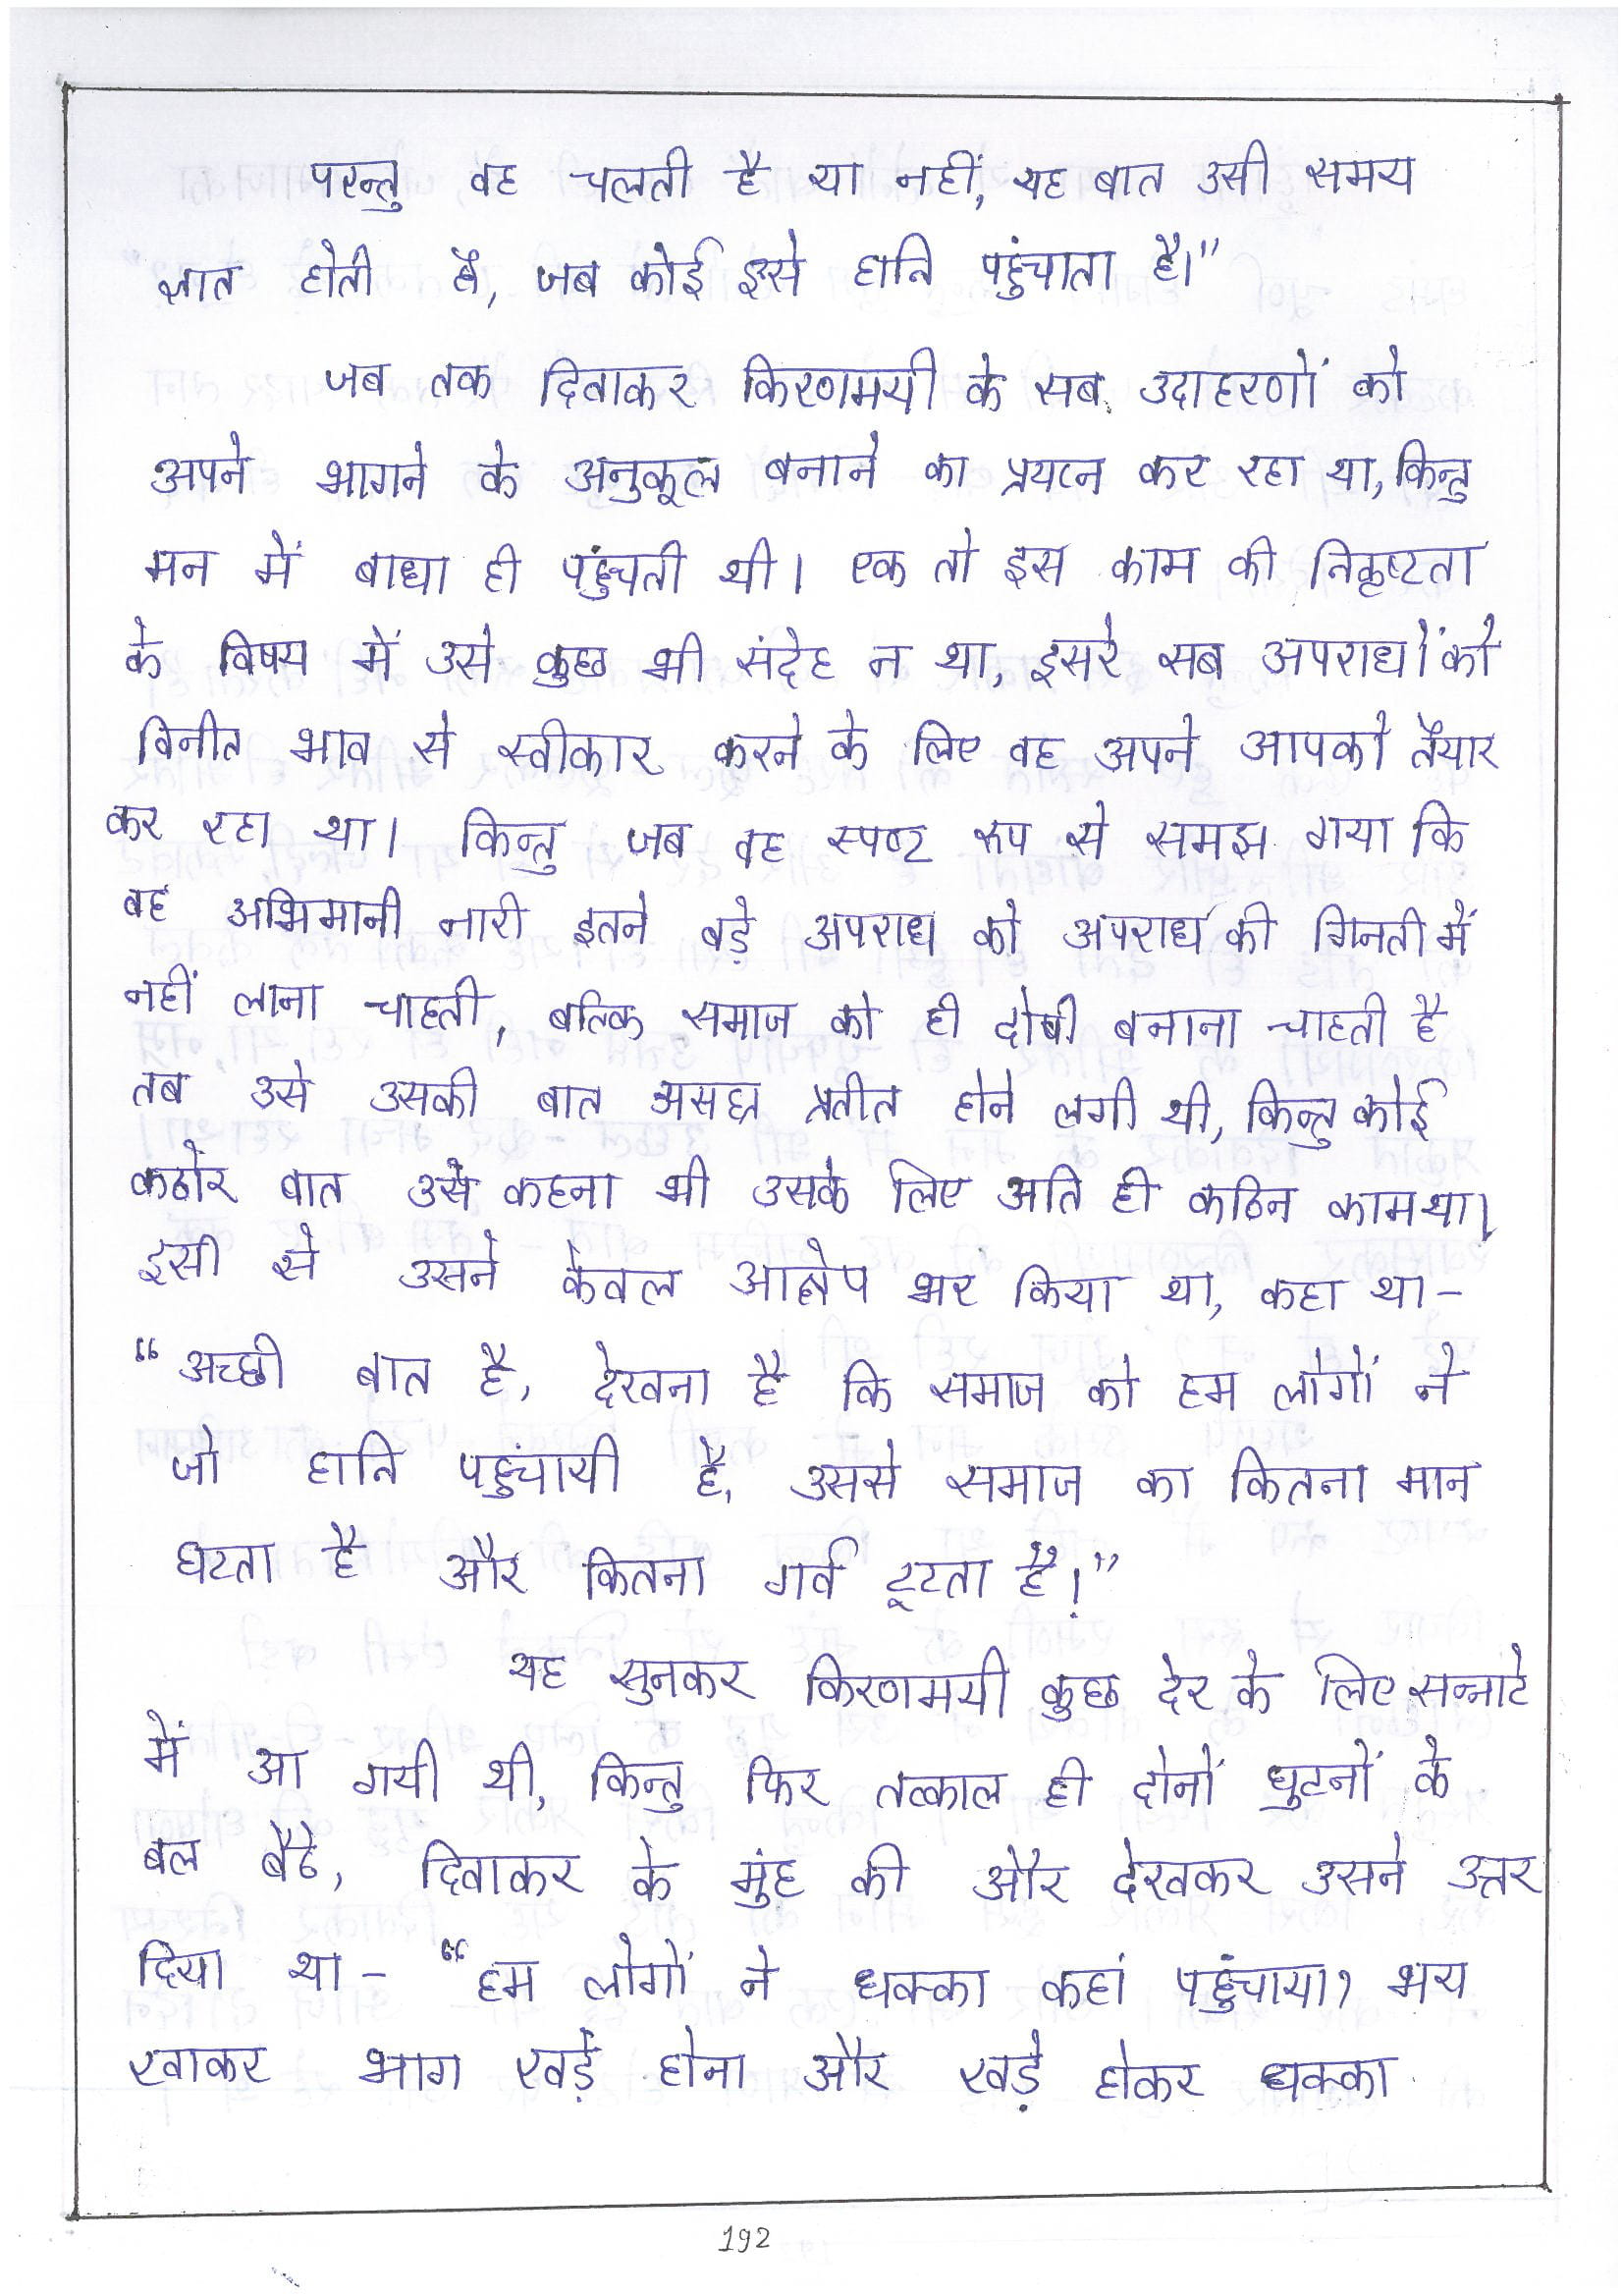 परन्तु वह चलती है या नहीं, यह बात उसी समय
ज्ञात होती है, जब कोई इसे हानि पहुंचाता है।”
जब तक दिवाकर किरणमयी के सब उदाहरणों को
अपने भागने के अनुकूल बनाने का प्रयत्न कर रहा था, किन्तु
मन में बाधा ही पहुंचती थी। एक तो इस काम की निकृष्टता
के विषय में उसे कुछ भी संदेह न था, इसरे सब अपराधों को
विनीत भाव से स्वीकार करने के लिए वह अपने आपको तैयार
कर रहा था। किन्तु जब वह स्पष्ट रूप से समझ गया कि
वह अभिमानी नारी इतने बड़े अपराध को अपराध की गिनती में
नहीं लाना चाहती, बल्कि समाज को ही दोषी बनाना चाहती है
तब उसे उसकी बात असह्य प्रतीत होने लगी थी, किन्तु कोई
कठोर बात उसे कहना भी उसके लिए अति ही कठिन काम था।
इसी से उसने केवल आक्षेप भर किया था, कहा था-
“अच्छी बात है, देखना है कि समाज को हम लोगों ने
जो हानि पहुंचायी है, उससे समाज का कितना मान
घटता है और कितना गर्व टूटता है।”
यह सुनकर किरणमयी कुछ देर के लिए सन्नाटे
में आ गयी थी, किन्तु फिर तत्काल ही दोनों घुटनों के
बल बैठे, दिवाकर के मुंह की और देखकर उसने उत्तर
दिया था- “हम लोगों ने धक्का कहां पहुंचाया? भय
खाकर भाग खड़े होना और खड़े होकर धक्का
192